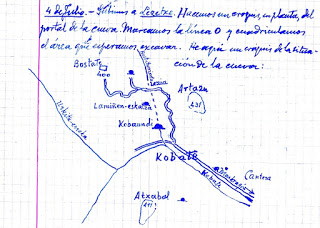 4 de Julio.- Subimos a Lezetxe. Hacemos un croquis, en planta, del
portal de la cueva. Marcamos la línea 0 y cuadriculamos
el área que esperamos excavar. He aquí un croquis de la situa-
ción de la cueva:
Bostate
400
Artazu
431
Lamiñen-eskatza
Kobaundi
Kobate
Kobate
Cantera
Atxabal
411